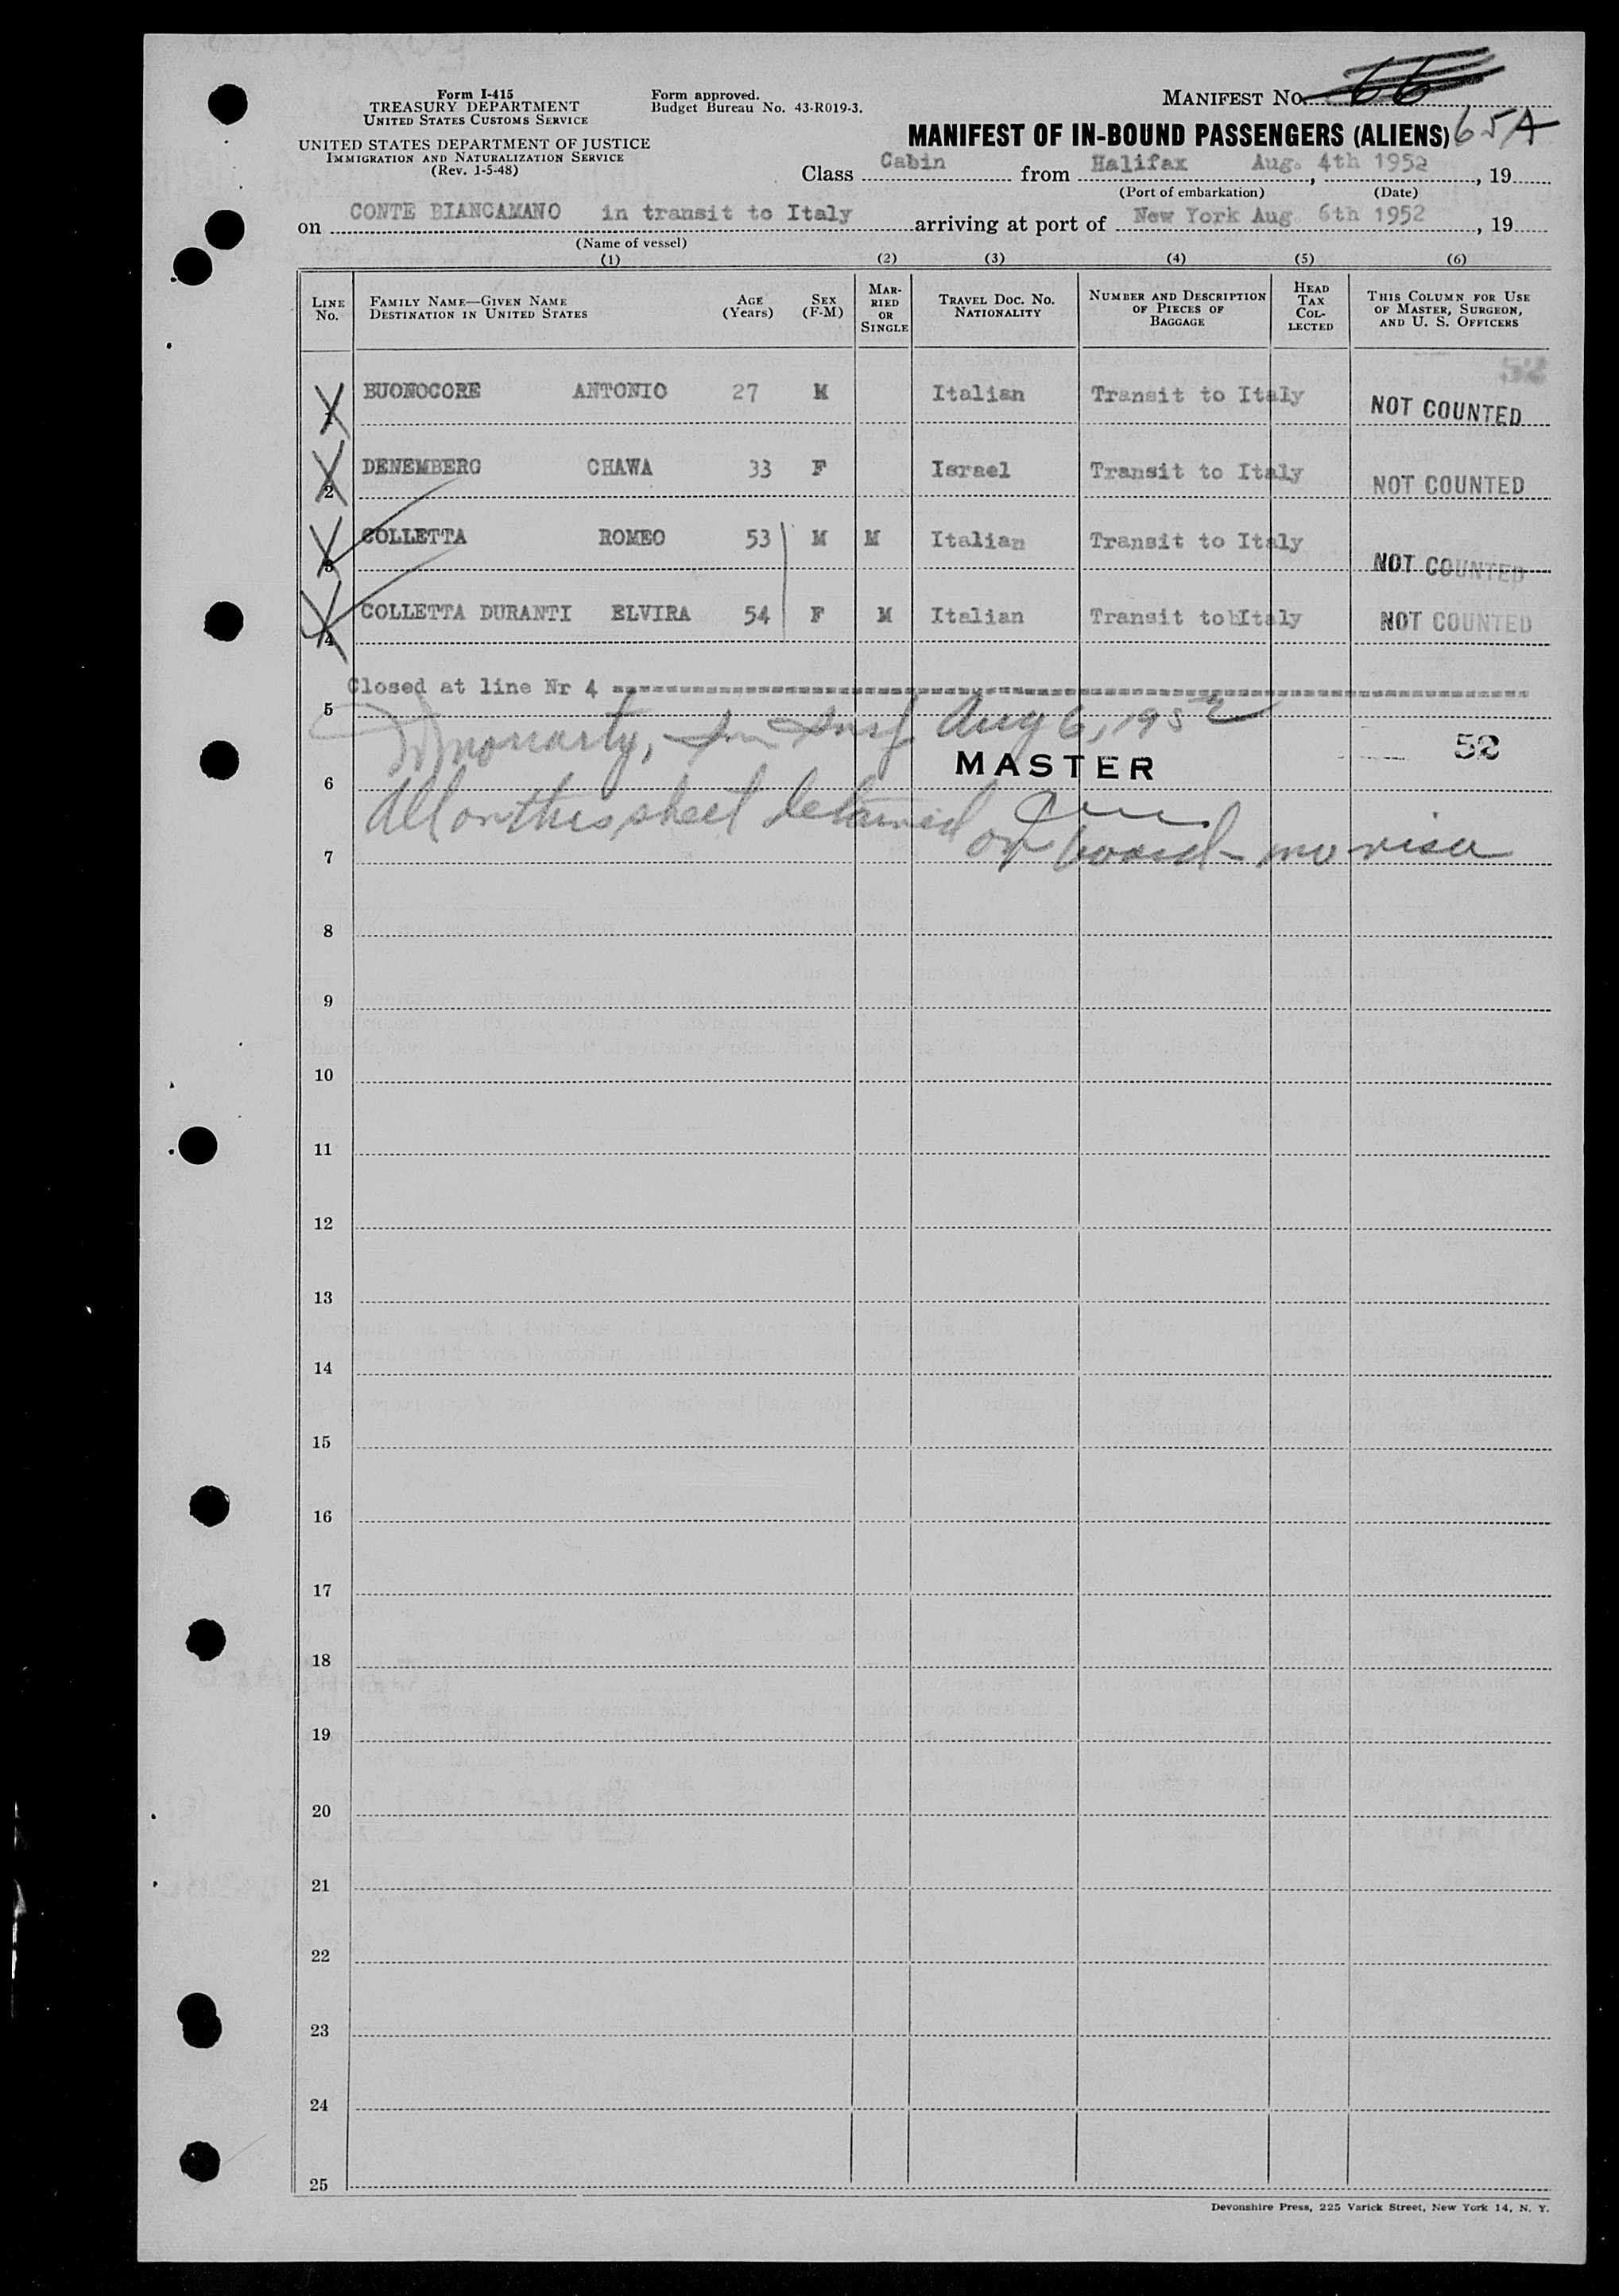 Form I-415
TREASURY DEPARTMENT
UNITED STATES CUSTOMS SERVICE
UNITED STATES DEPARTMENT OF JUSTICE
IMMIGRATION AND NATURALIZATION SERVICE
(Rev. 1-5-48)
Form approved.
Budget Bureau No. 43-R019-3.
MANIFEST No. 66
65A
MANIFEST OF IN-BOUND PASSENGERS (ALIENS)
Class Cabin from Halifax Aug. 4th 1952, 19
(Port of embarkation) (Date)
on CONTE BIANCAMANO in transit to Italy arriving at port of New York Aug. 6th 1952, 19
(Name of vessel)
(1) (2) (3) (4) (5) (6)
LINE No. FAMILY NAME—GIVEN NAME DESTINATION IN UNITED STATES AGE (Years) SEX (F-M) MARRIED OR SINGLE TRAVEL DOC. NO. NATIONALITY NUMBER AND DESCRIPTION OF PIECES OF BAGGAGE HEAD TAX COLLECTED THIS COLUMN FOR USE OF MASTER, SURGEON, AND U. S. OFFICERS
52
1 BUONOCORE ANTONIO 27 M Italian Transit to Italy NOT COUNTED
2 DENEMBERG CHAWA 33 F Israel Transit to Italy NOT COUNTED
3 COLLETTA ROMEO 53 M M Italian Transit to Italy NOT COUNTED
4 COLLETTA DURANTI ELVIRA 54 F M Italian Transit to Italy NOT COUNTED
Closed at line Nr 4
5 Moriarty, Im Insp Aug 6, 1952
MASTER 52
6
All on this sheet detained on board - no visa
7
8
9
10
11
12
13
14
15
16
17
18
19
20
21
22
23
24
25
Devonshire Press, 225 Varick Street, New York 14, N. Y.